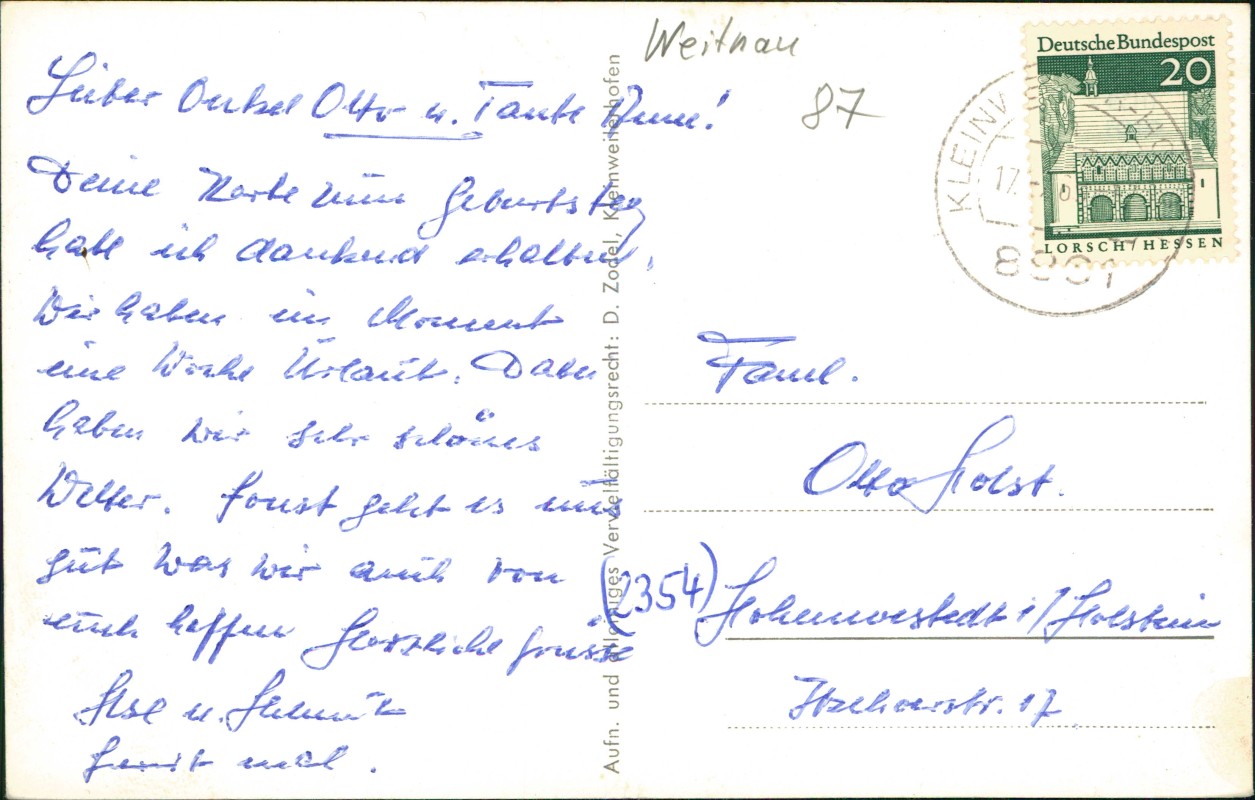 Lieber Onkel Otto u. Tante Anne!
Deine Karte zum Geburtstag
habe ich dankend erhalten.
Wir haben im Moment
eine Woche Urlaub. Dabei
haben wir sehr schönes
Wetter. Sonst geht es uns
gut was wir auch von
euch hoffen Herzliche Grüsse
Ilse u. Helmut
Aufn. und alleiniges Vervielfältigungsrecht: D. Zodel, Kleinweilerhofen
Weitnau
87
Deutsche Bundespost
20
LORSCH/HESSEN
KLEINW
17.
Faml.
Otto Holst.
(2354) Hohenwestedt i/Holstein
Itzehoerstr. 17